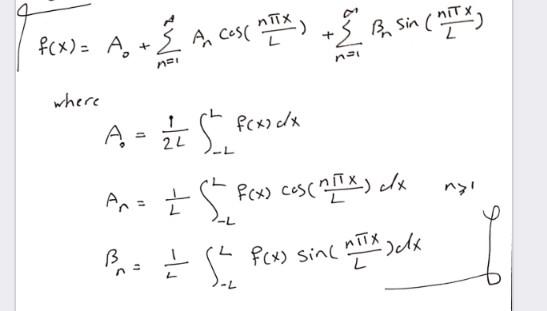 f(x) = A₀ + ∑_{n=1}^{∞} Aₙ cos(nπx/L) + ∑_{n=1}^{∞} Bₙ sin(nπx/L)
where
A₀ = 1/2L ∫_{-L}^{L} f(x) dx
Aₙ = 1/L ∫_{-L}^{L} f(x) cos(nπx/L) dx n≥1
Bₙ = 1/L ∫_{-L}^{L} f(x) sin(nπx/L) dx